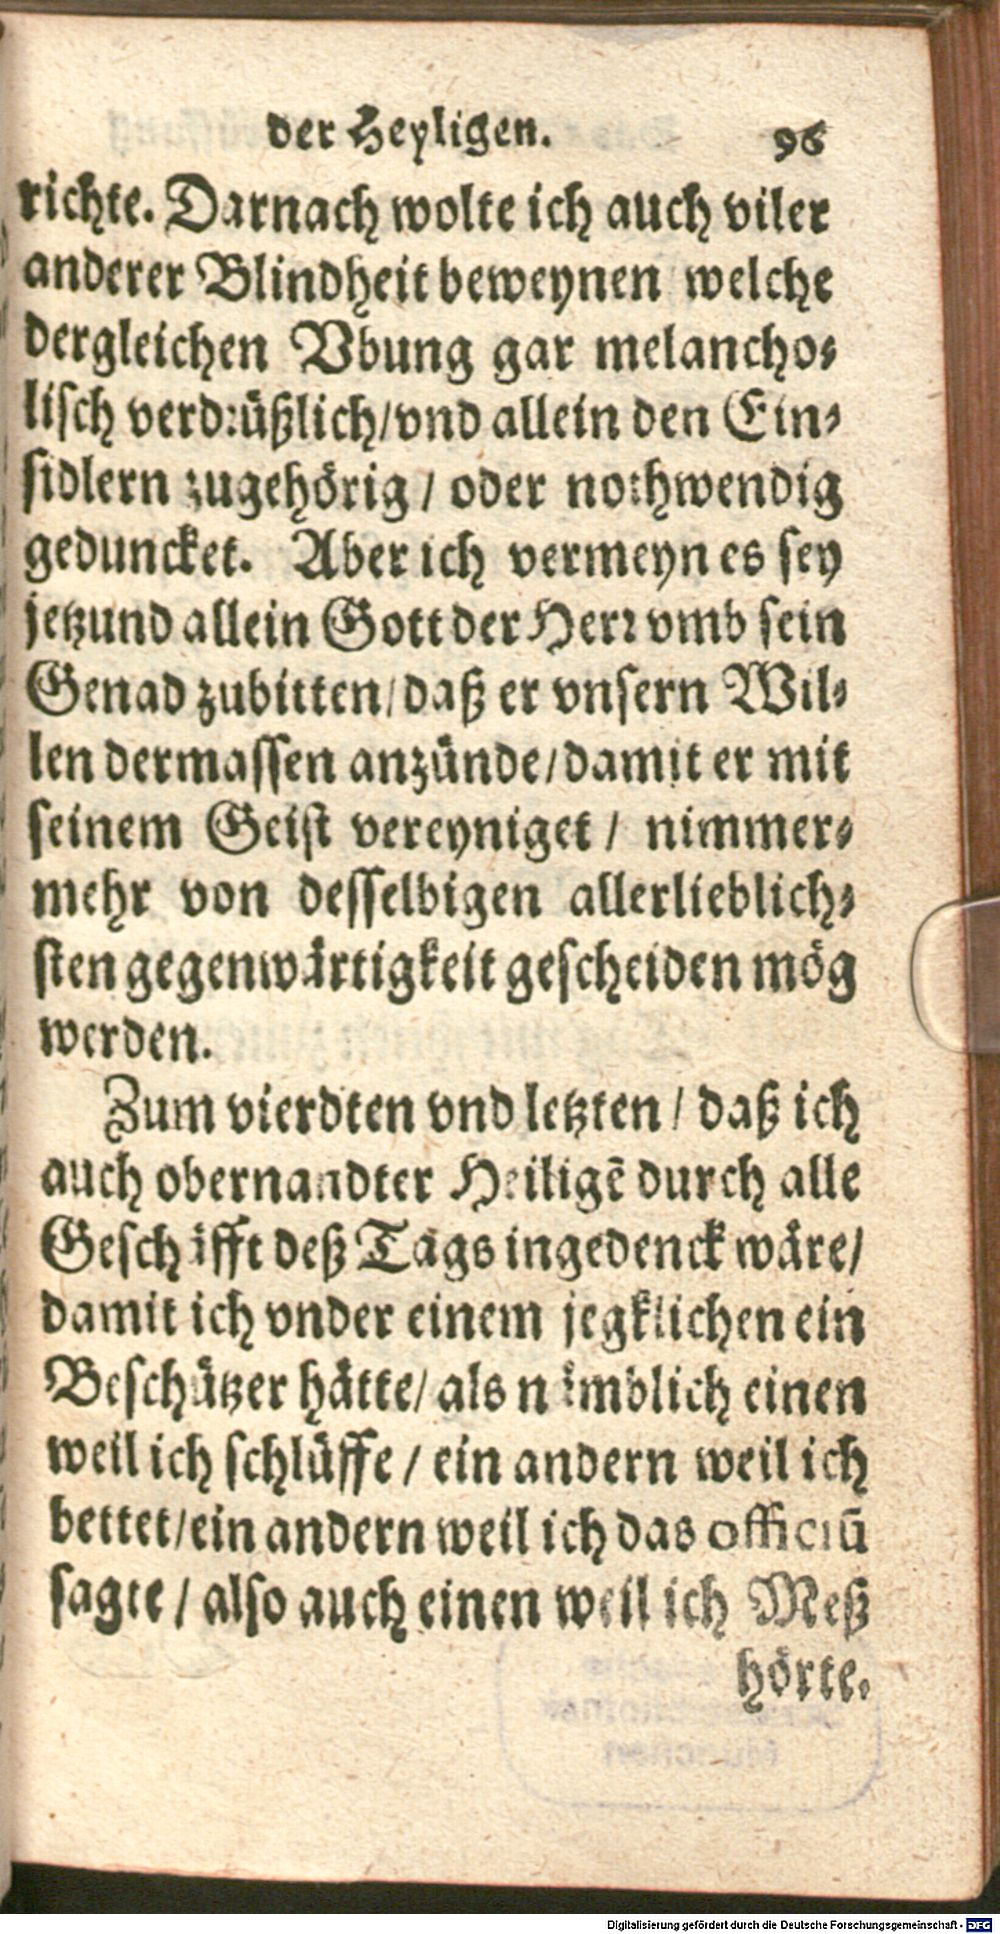 der Heyligen. 96
richte. Darnach wolte ich auch viler
anderer Blindheit beweynen welche
dergleichen Vbung gar melancho-
lisch verdrüßlich/vnd allein den Ein-
sidlern zugehörig / oder nothwendig
geduncket. Aber ich vermeyn es sey
jetzund allein Gott der Herr vmb sein
Genad zubitten/daß er vnsern Wil-
len dermassen anzünde/damit er mit
seinem Geist vereyniget / nimmer-
mehr von desselbigen allerlieblich-
sten gegenwärtigkeit gescheiden mög
werden.
Zum vierdten vnd letzten / daß ich
auch obernandter Heiligē durch alle
Geschäfft deß Tags ingedenck wäre/
damit ich vnder einem jegklichen ein
Beschützer hätte/ als nämblich einen
weil ich schlüffe / ein andern weil ich
bettet/ein andern weil ich das officiū
sagte / also auch einen weil ich Meß
hörte.
Digitalisierung gefördert durch die Deutsche Forschungsgemeinschaft - DFG